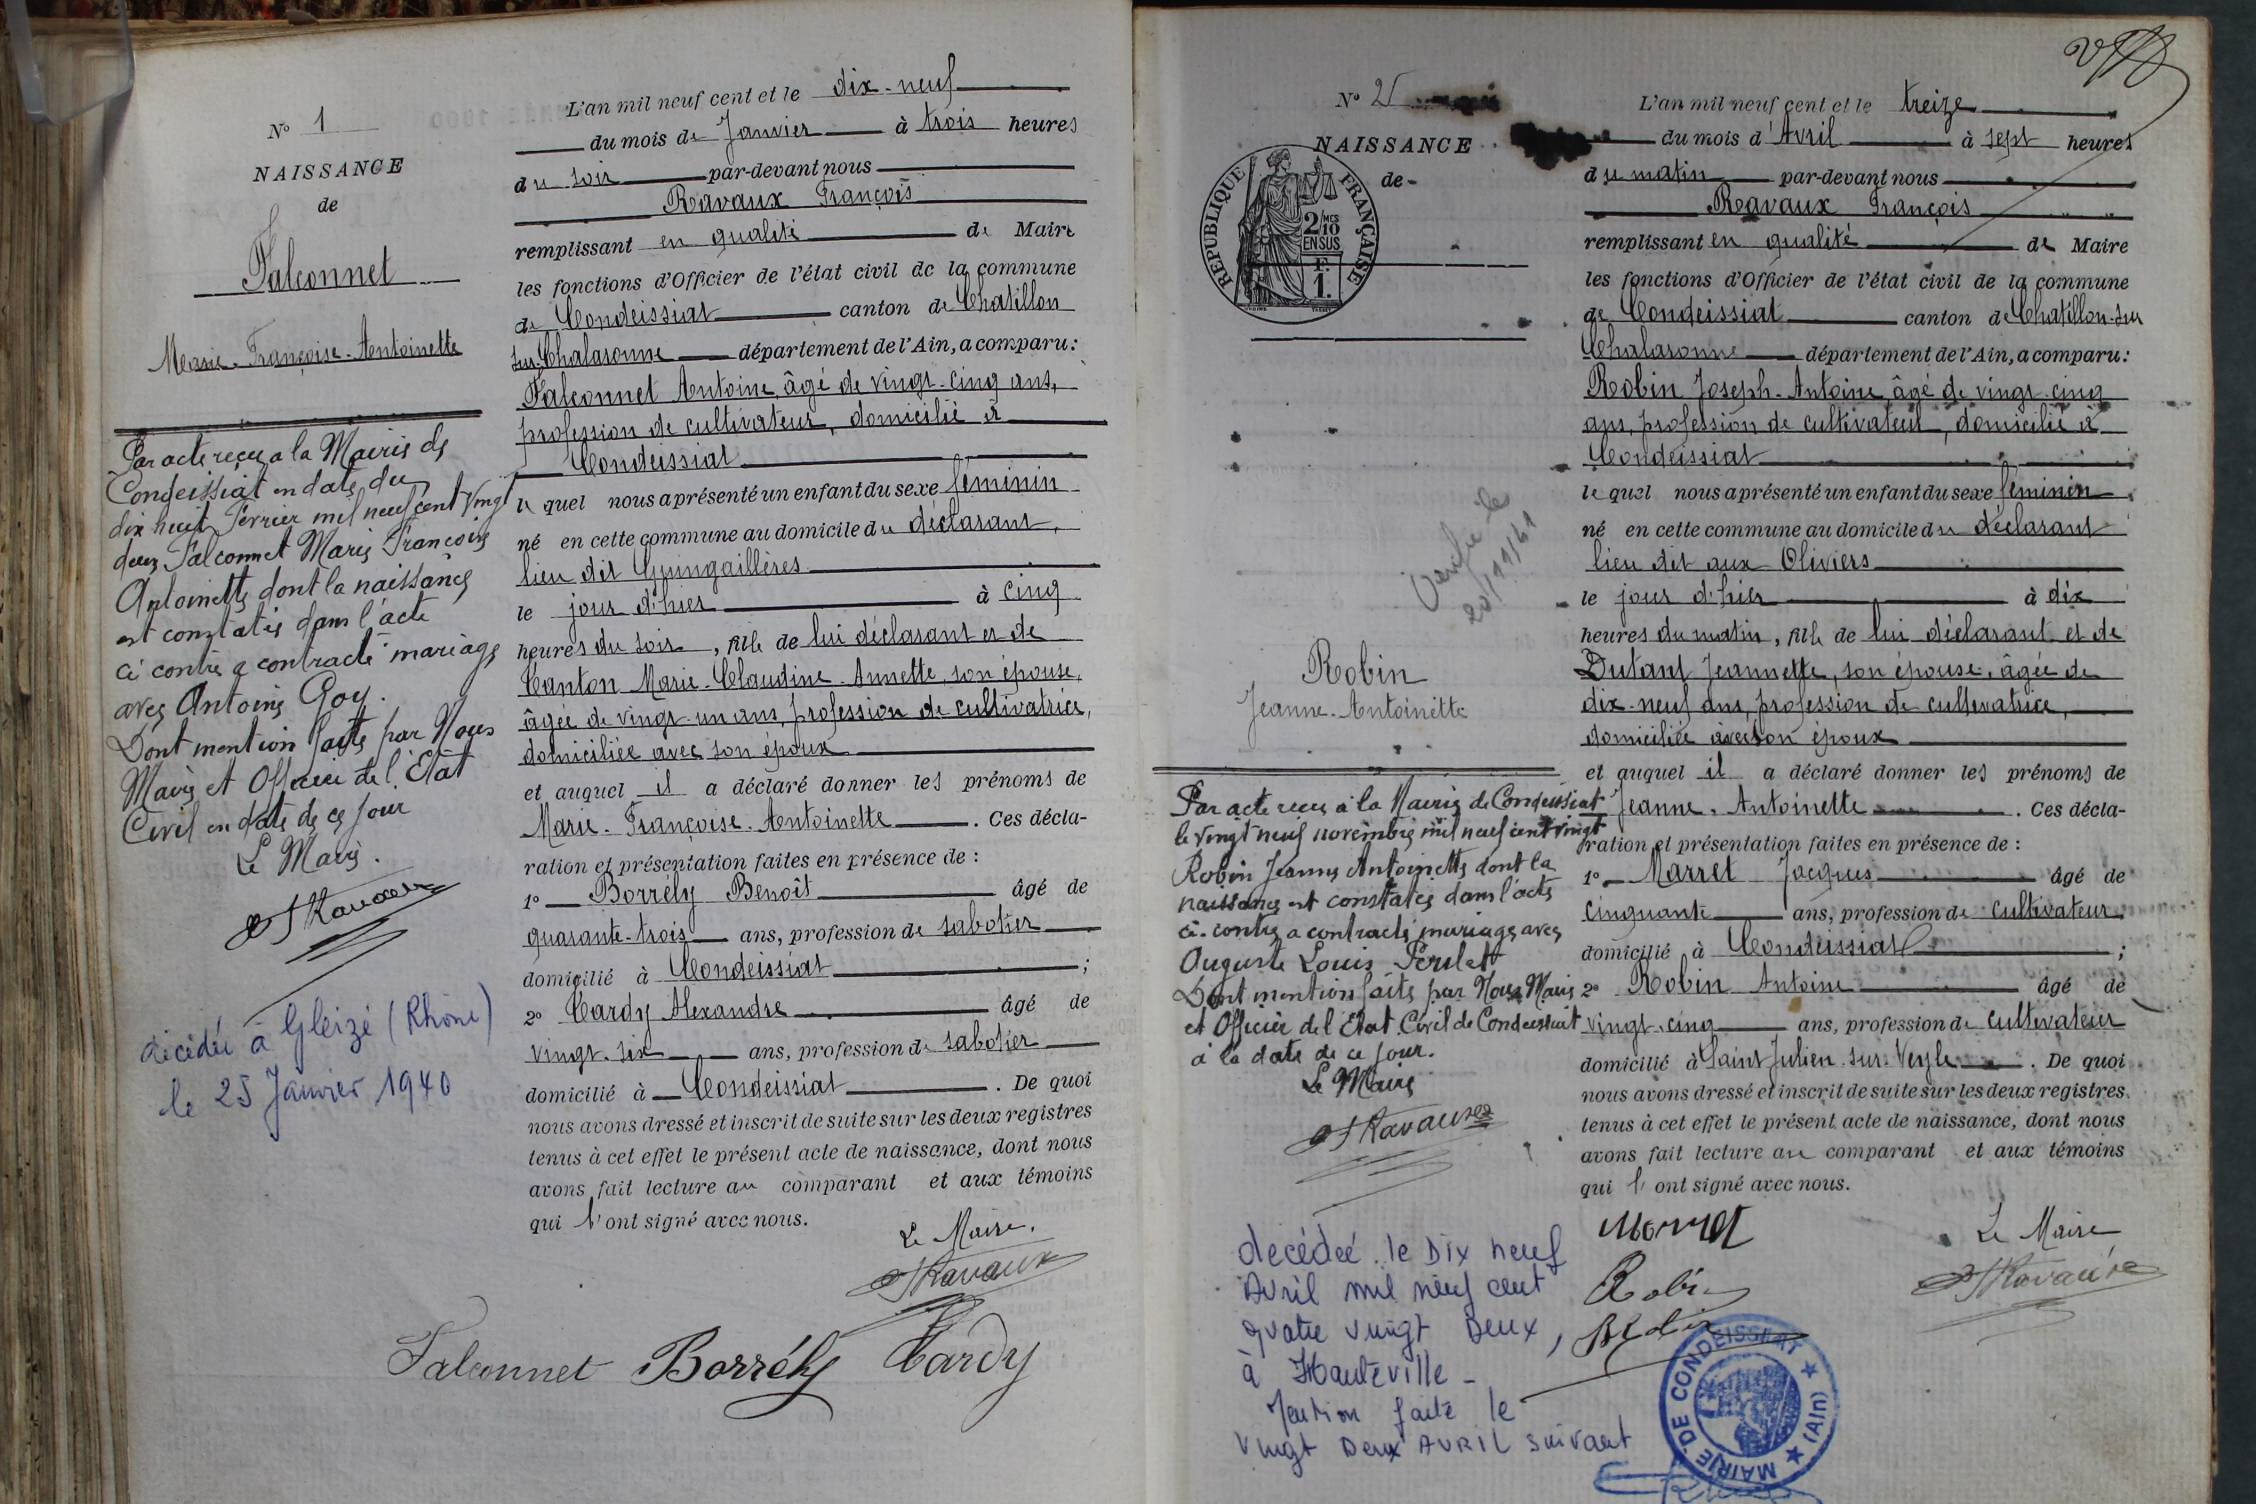 N° 1
NAISSANCE
de
Falconnet
Marie-Françoise-Antoinette
Par acte reçu a la Mairie de
Condeissiat en date du
dix huit Février mil neuf cent vingt
deux Falconnet Marie Françoise
Antoinette dont la naissance
est constatée dans l'acte
ci contre a contracté mariage
avec Antoine Goy.
Dont mention faite par Nous
Maire et Officier de l'Etat
Civil en date de ce jour
Le Maire.
Ravaux
décédée à Gleizé (Rhône)
le 25 Janvier 1940
L'an mil neuf cent et le dix-neuf
du mois de Janvier à trois heures
du soir par-devant nous
Ravaux François
remplissant en qualité de Maire
les fonctions d'Officier de l'état civil de la commune
de Condeissiat canton de Chatillon
sur-Chalaronne département de l'Ain, a comparu:
Falconnet Antoine, âgé de vingt-cinq ans,
profession de cultivateur, domicilié à
Condeissiat
le quel nous a présenté un enfant du sexe féminin
né en cette commune au domicile du déclarant,
lieu dit Guingaillères
le jour d'hier à cinq
heures du soir, fille de lui déclarant et de
Canton Marie-Claudine-Annette, son épouse,
âgée de vingt-un ans, profession de cultivatrice,
domiciliée avec son époux
et auquel il a déclaré donner les prénoms de
Marie-Françoise-Antoinette. Ces décla-
ration et présentation faites en présence de :
1° Borrély Benoît âgé de
quarante-trois ans, profession de sabotier
domicilié à Condeissiat ;
2° Cardy Alexandre âgé de
vingt-six ans, profession de sabotier
domicilié à Condeissiat. De quoi
nous avons dressé et inscrit de suite sur les deux registres
tenus à cet effet le présent acte de naissance, dont nous
avons fait lecture au comparant et aux témoins
qui l'ont signé avec nous.
Le Maire.
Ravaux
Falconnet Borrély Cardy
N° 2
NAISSANCE
de
RÉPUBLIQUE FRANÇAISE
2/10 MES
EN SUS
F.
1.
Vérifié le
20/11/41
Robin
Jeanne-Antoinette
Par acte reçu à la Mairie de Condeissiat
le vingt neuf novembre mil neuf cent vingt
Robin Jeanne Antoinette dont la
naissance est constatée dans l'acte
ci-contre a contracté mariage avec
Auguste Louis Perulet
Dont mention faite par Nous Maire
et Officier de l'Etat Civil de Condeissiat
à la date de ce jour.
Le Maire
Ravaux
décédée le Dix neuf
Avril mil neuf cent
quatre vingt Deux,
à Hauteville -
Mention faite le
vingt Deux AVRIL suivant
L'an mil neuf cent et le treize
du mois d'Avril à sept heures
du matin par-devant nous
Ravaux François
remplissant en qualité de Maire
les fonctions d'Officier de l'état civil de la commune
de Condeissiat canton de Chatillon-sur
Chalaronne département de l'Ain, a comparu:
Robin Joseph-Antoine, âgé de vingt-cinq
ans, profession de cultivateur, domicilié à
Condeissiat
le quel nous a présenté un enfant du sexe féminin
né en cette commune au domicile du déclarant
lieu dit aux Oliviers
le jour d'hier à dix
heures du matin, fille de lui déclarant et de
Dutant Jeannette, son épouse, âgée de
dix-neuf ans, profession de cultivatrice,
domiciliée avec son époux
et auquel il a déclaré donner les prénoms de
Jeanne-Antoinette. Ces décla-
ration et présentation faites en présence de :
1° Marret Jacques âgé de
cinquante ans, profession de cultivateur
domicilié à Condeissiat ;
2° Robin Antoine âgé de
vingt-cinq ans, profession de cultivateur
domicilié à Saint Julien-sur-Veyle. De quoi
nous avons dressé et inscrit de suite sur les deux registres
tenus à cet effet le présent acte de naissance, dont nous
avons fait lecture au comparant et aux témoins
qui l'ont signé avec nous.
Marret
Le Maire
Robin
Ravaux
Robin
MAIRIE DE CONDEISSIAT (Ain)